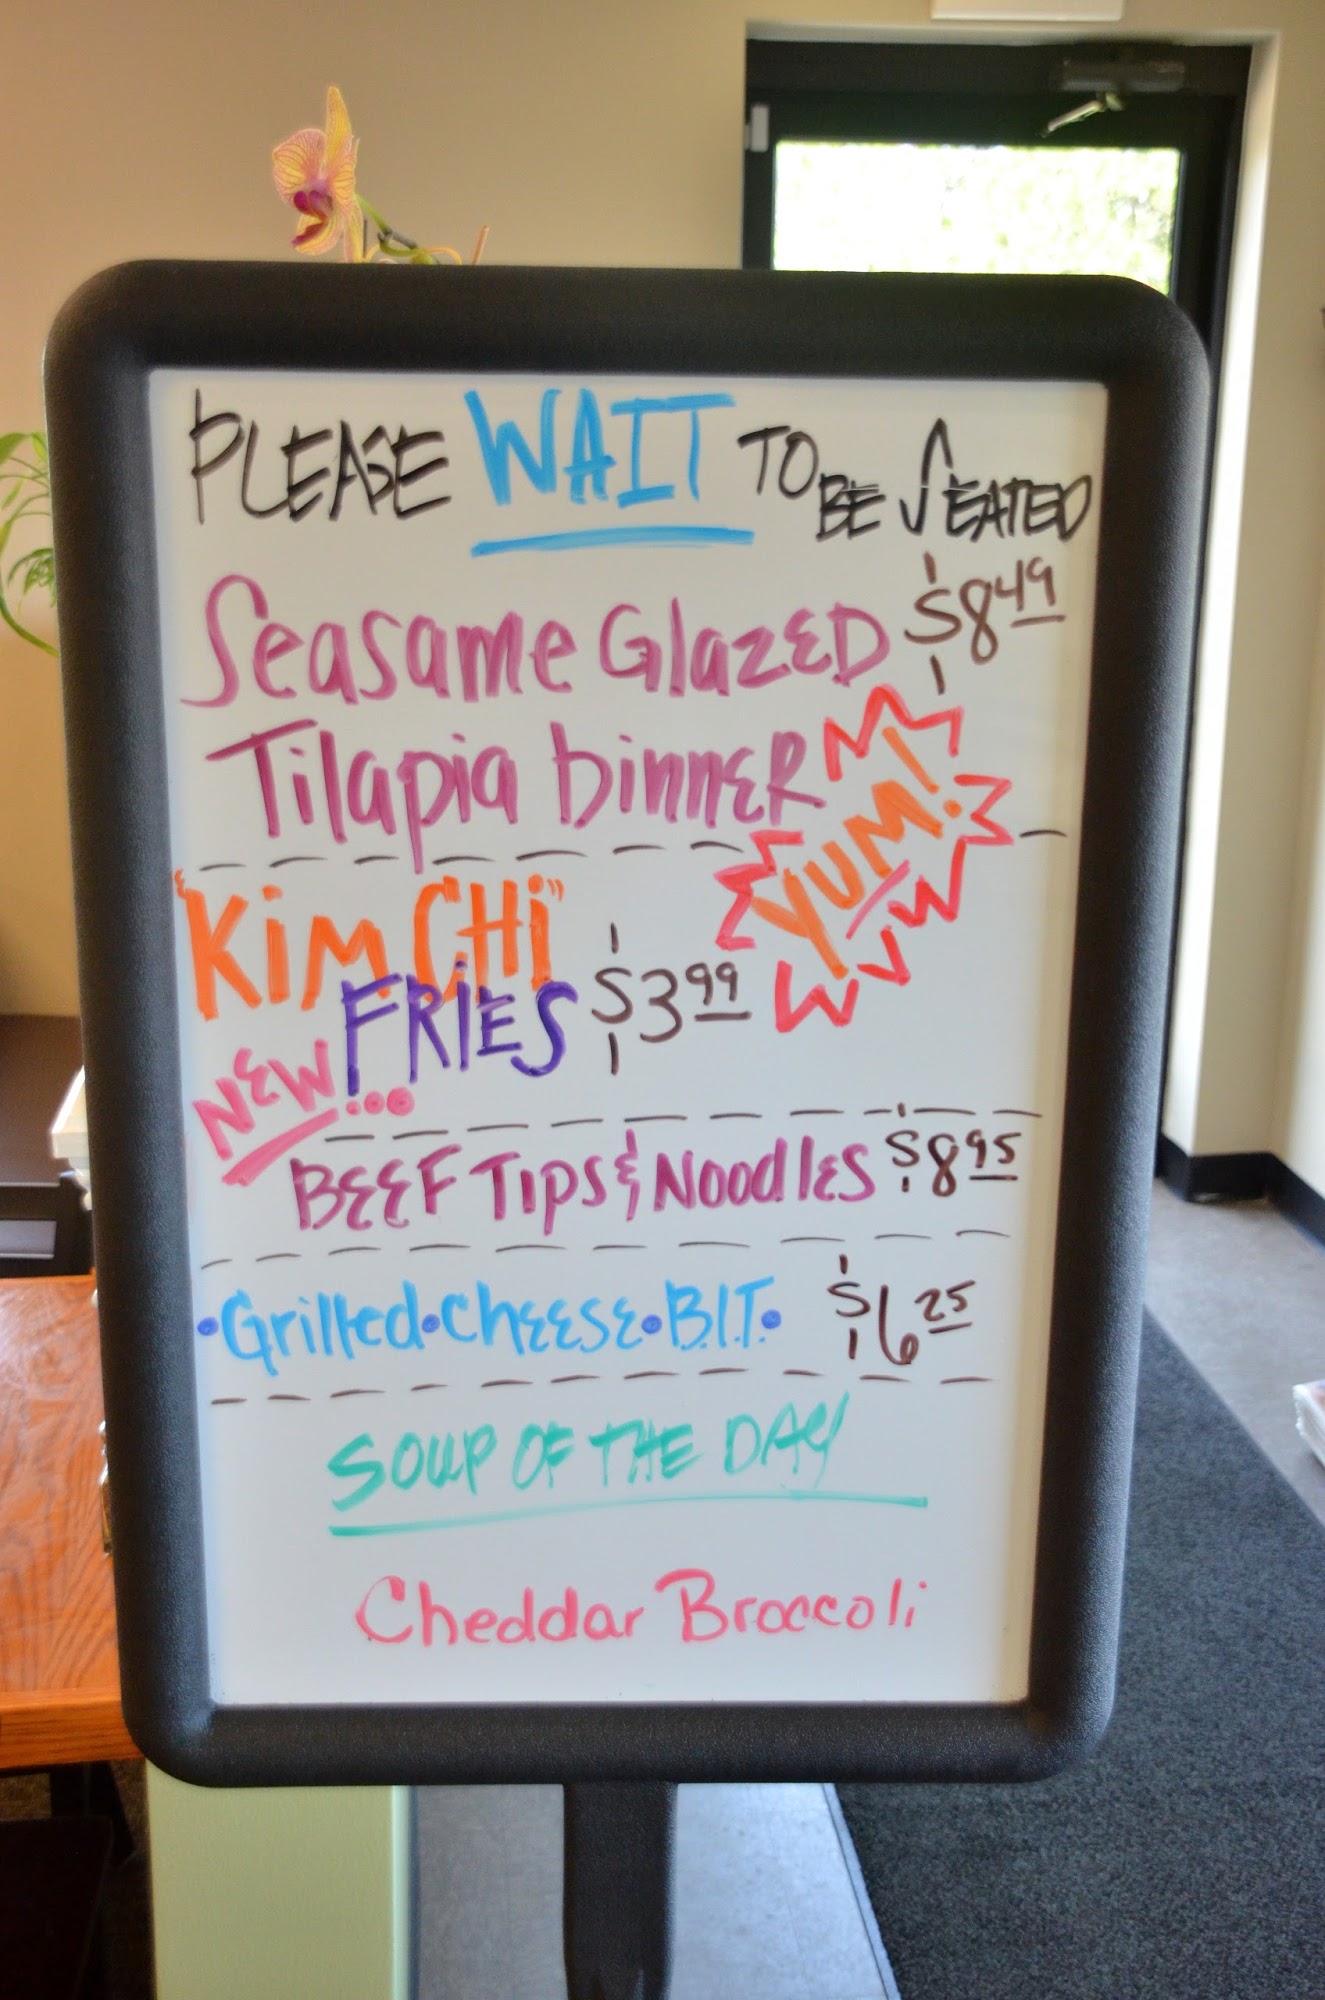 PLEASE WAIT TO BE SEATED
Seasame Glazed $8.49
Tilapia Dinner
YUM!
"KimCHi"
FRIES $3.99
NEW...
BEEF Tips & Noodles $8.95
•Grilled•Cheese•B.L.T.• $6.25
SOUP OF THE DAY
Cheddar Broccoli